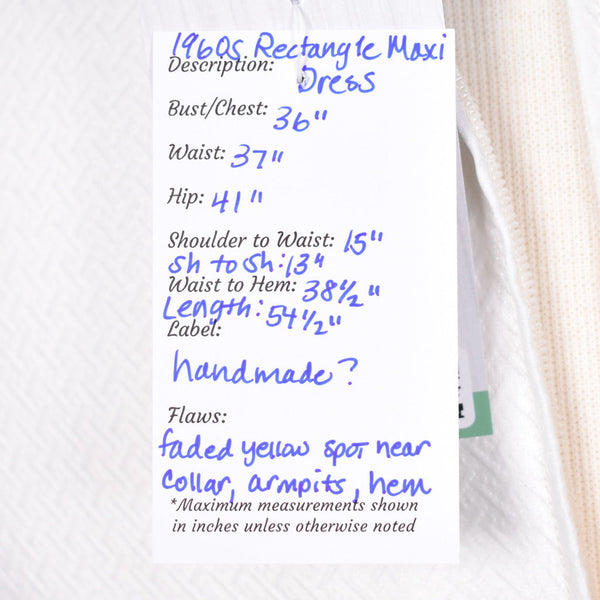 1960s Rectangle Maxi
Description:
Dress
Bust/Chest: 36"
Waist: 37"
Hip: 41"
Shoulder to Waist: 15"
Sh to Sh: 13"
Waist to Hem: 38½"
Length: 54½"
Label:
handmade?
Flaws:
faded yellow spot near
collar, armpits, hem
*Maximum measurements shown
in inches unless otherwise noted